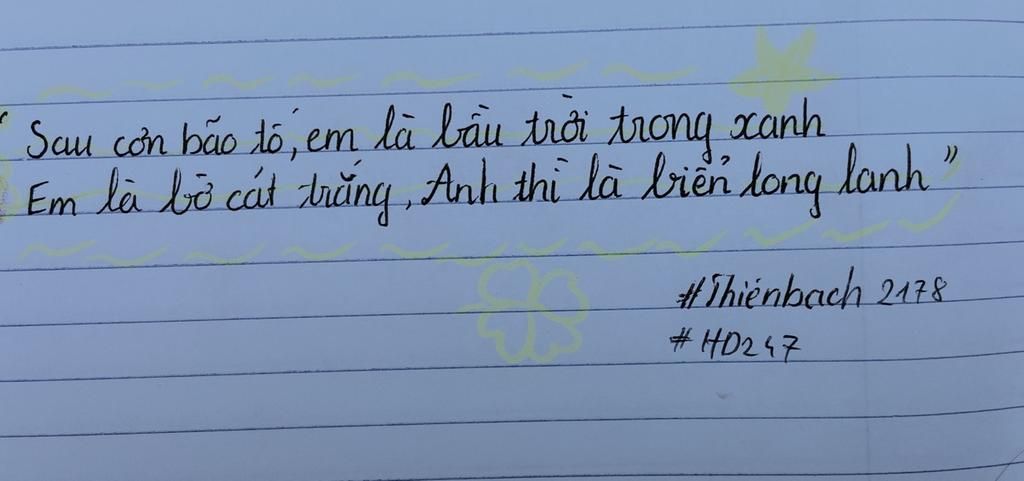 “Sau cơn bão tố, em là bầu trời trong xanh
Em là bờ cát trắng, Anh thì là biển long lanh”
#Thiênbach 2178
#HD247